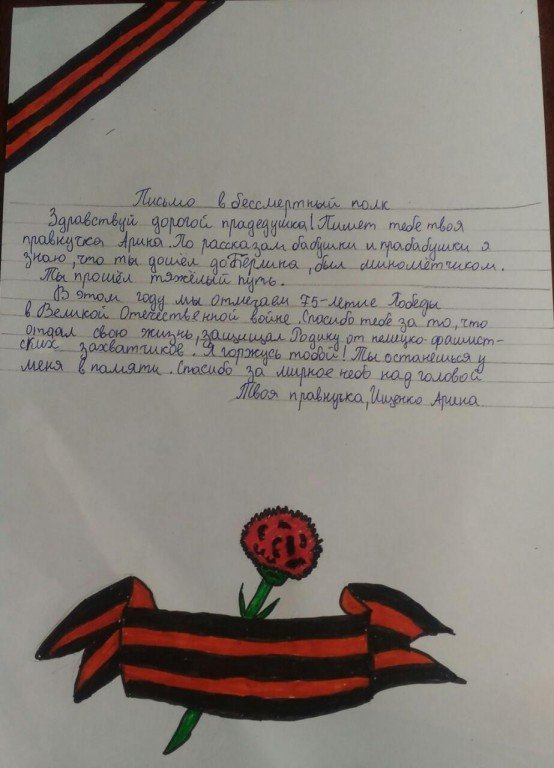 Письмо в бессмертный полк
Здравствуй дорогой прадедушка! Пишет тебе твоя
правнучка Арина. По рассказам бабушки и прабабушки я
знаю, что ты дошёл до Берлина, был минометчиком.
Ты прошёл тяжёлый путь.
В этом году мы отмечаем 75-летие Победы
в Великой Отечественной войне. Спасибо тебе за то, что
отдал свою жизнь, защищал Родину от немецко-фашист-
ских захватчиков. Я горжусь тобой! Ты останешься у
меня в памяти. Спасибо за мирное небо над головой
Твоя правнучка, Ищенко Арина